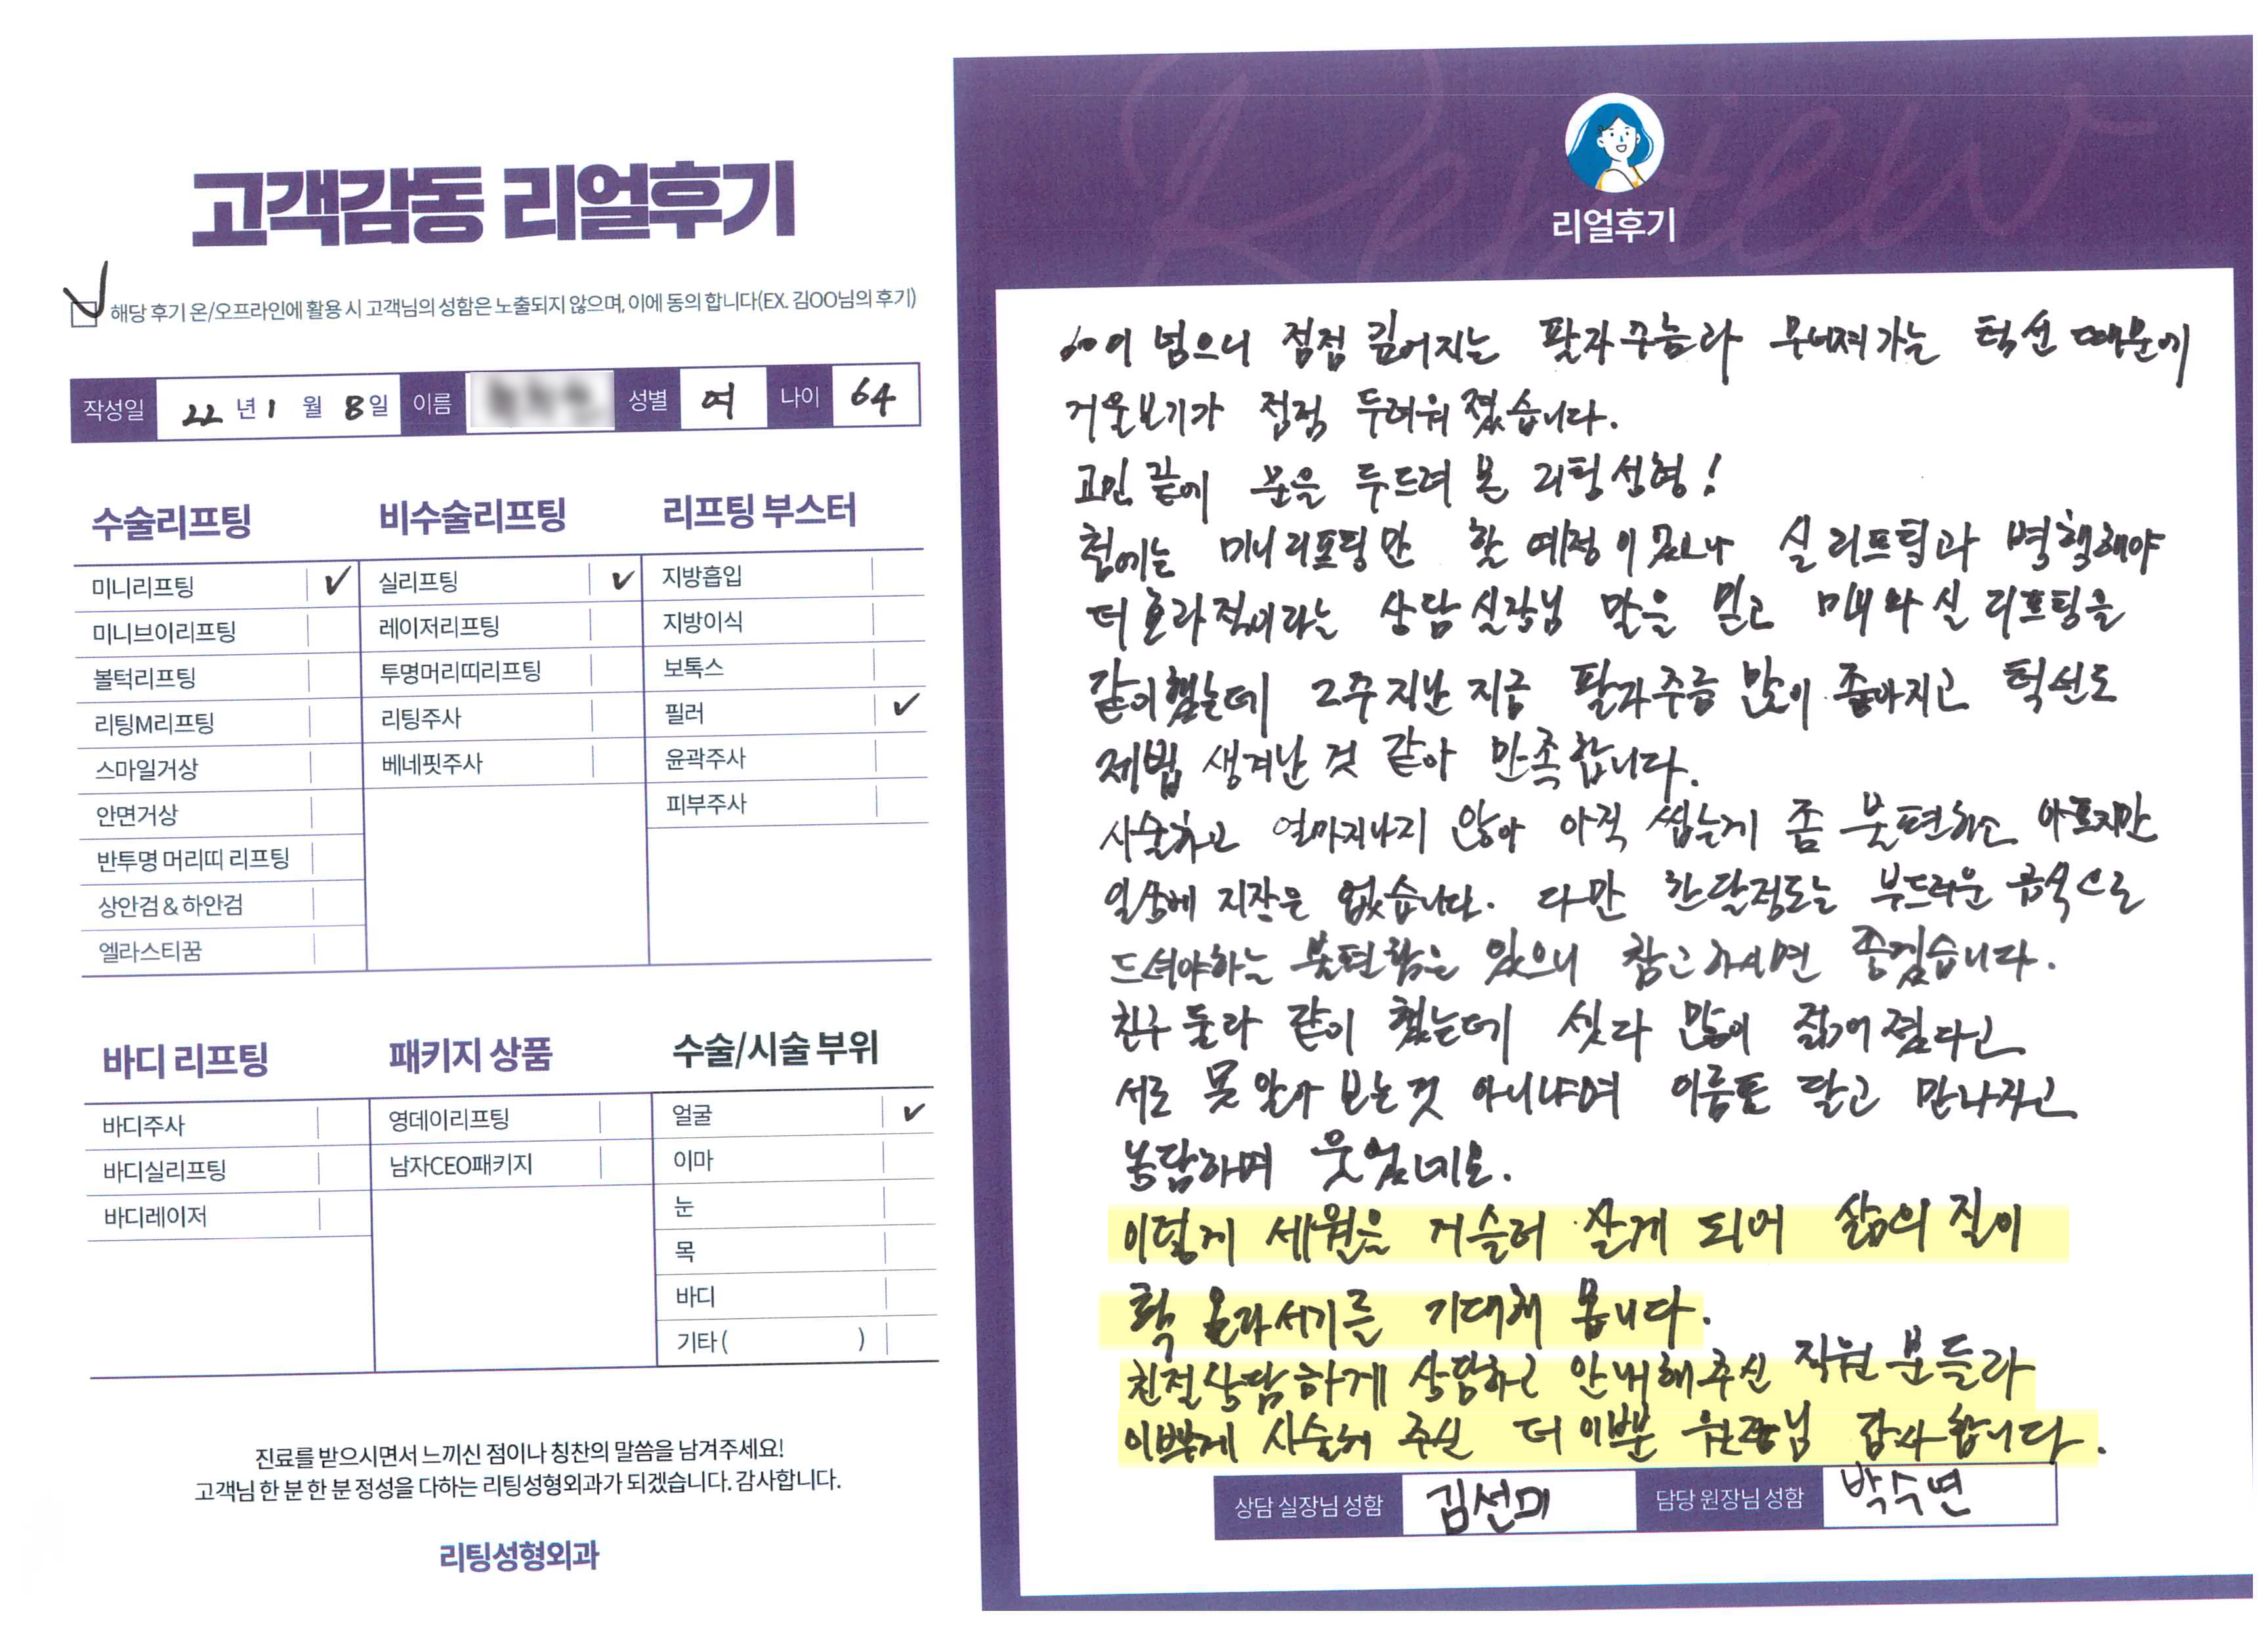 고객감동 리얼후기
해당 후기 온/오프라인에 활용 시 고객님의 성함은 노출되지 않으며, 이에 동의 합니다(EX. 김OO님의 후기)
작성일 22 년 1 월 8 일 이름 성별 여 나이 64
수술리프팅
미니리프팅 ✓
미니브이리프팅
볼턱리프팅
리팅M리프팅
스마일거상
안면거상
반투명 머리띠 리프팅
상안검 & 하안검
엘라스티꿈
비수술리프팅
실리프팅 ✓
레이저리프팅
투명머리띠리프팅
리팅주사
베네핏주사
리프팅 부스터
지방흡입
지방이식
보톡스
필러 ✓
윤곽주사
피부주사
바디 리프팅
바디주사
바디실리프팅
바디레이저
패키지 상품
영데이리프팅
남자CEO패키지
수술/시술 부위
얼굴 ✓
이마
눈
목
바디
기타 ( )
진료를 받으시면서 느끼신 점이나 칭찬의 말씀을 남겨주세요!
고객님 한 분 한 분 정성을 다하는 리팅성형외과가 되겠습니다. 감사합니다.
리팅성형외과
Review
리얼후기
60이 넘으니 점점 깊어지는 팔자주름과 무너져가는 턱선 때문에
거울보기가 점점 두려워 졌습니다.
고민 끝에 문을 두드려 본 리팅성형!
첨에는 미니리프팅만 할 예정이였으나 실리프팅과 병행해야
더 효과적이라는 상담실장님 말을 믿고 미니와 실 리프팅을
같이했는데 2주 지난 지금 팔자주름 많이 좋아지고 턱선도
제법 생겨난 것 같아 만족합니다.
시술하고 얼마지나지 않아 아직 씹는게 좀 불편하고 아프지만
일상에 지장은 없습니다. 다만 한달정도는 부드러운 음식으로
드셔야하는 불편함은 있으니 참고하시면 좋겠습니다.
친구 둘과 같이 했는데 셋다 많이 젊어졌다고
서로 못 알아 보는 것 아니냐며 이름표 달고 만나자고
농담하며 웃었네요.
이렇게 세월을 거슬러 살게 되어 삶의 질이
확 올라서기를 기대해 봅니다.
친절상담하게 상담하고 안내해주신 직원 분들과
이쁘게 시술해 주신 더 이쁜 원장님 감사합니다.
상담 실장님 성함 김선미 담당 원장님 성함 박수연